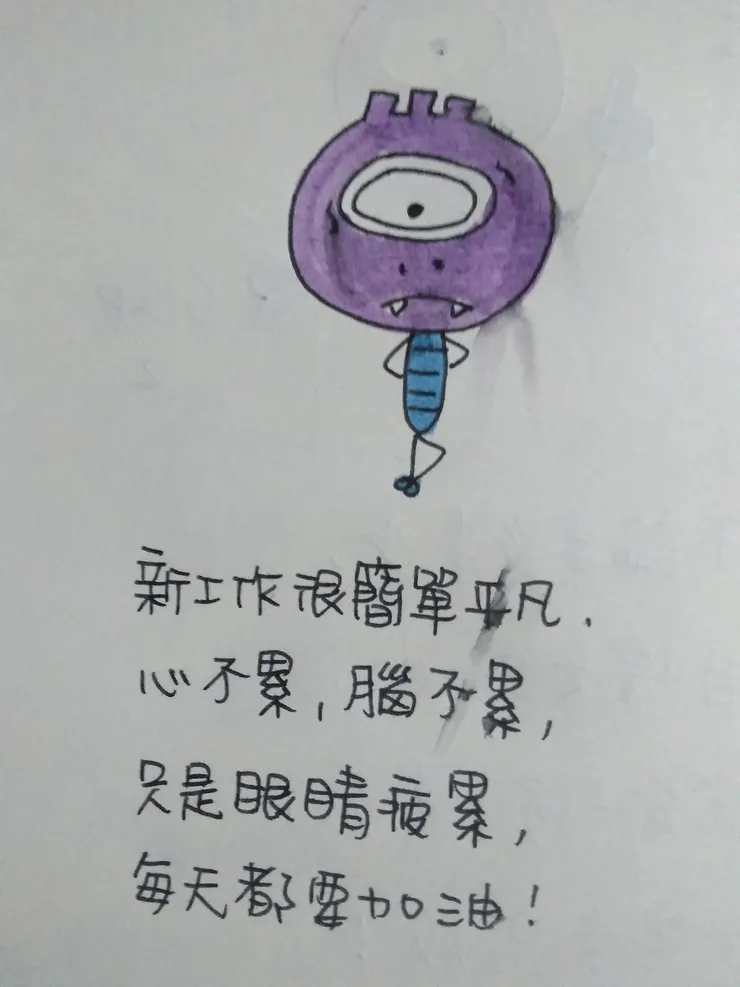 新工作很簡單平凡.
心不累,腦不累,
只是眼睛疲累,
每天都要加油!